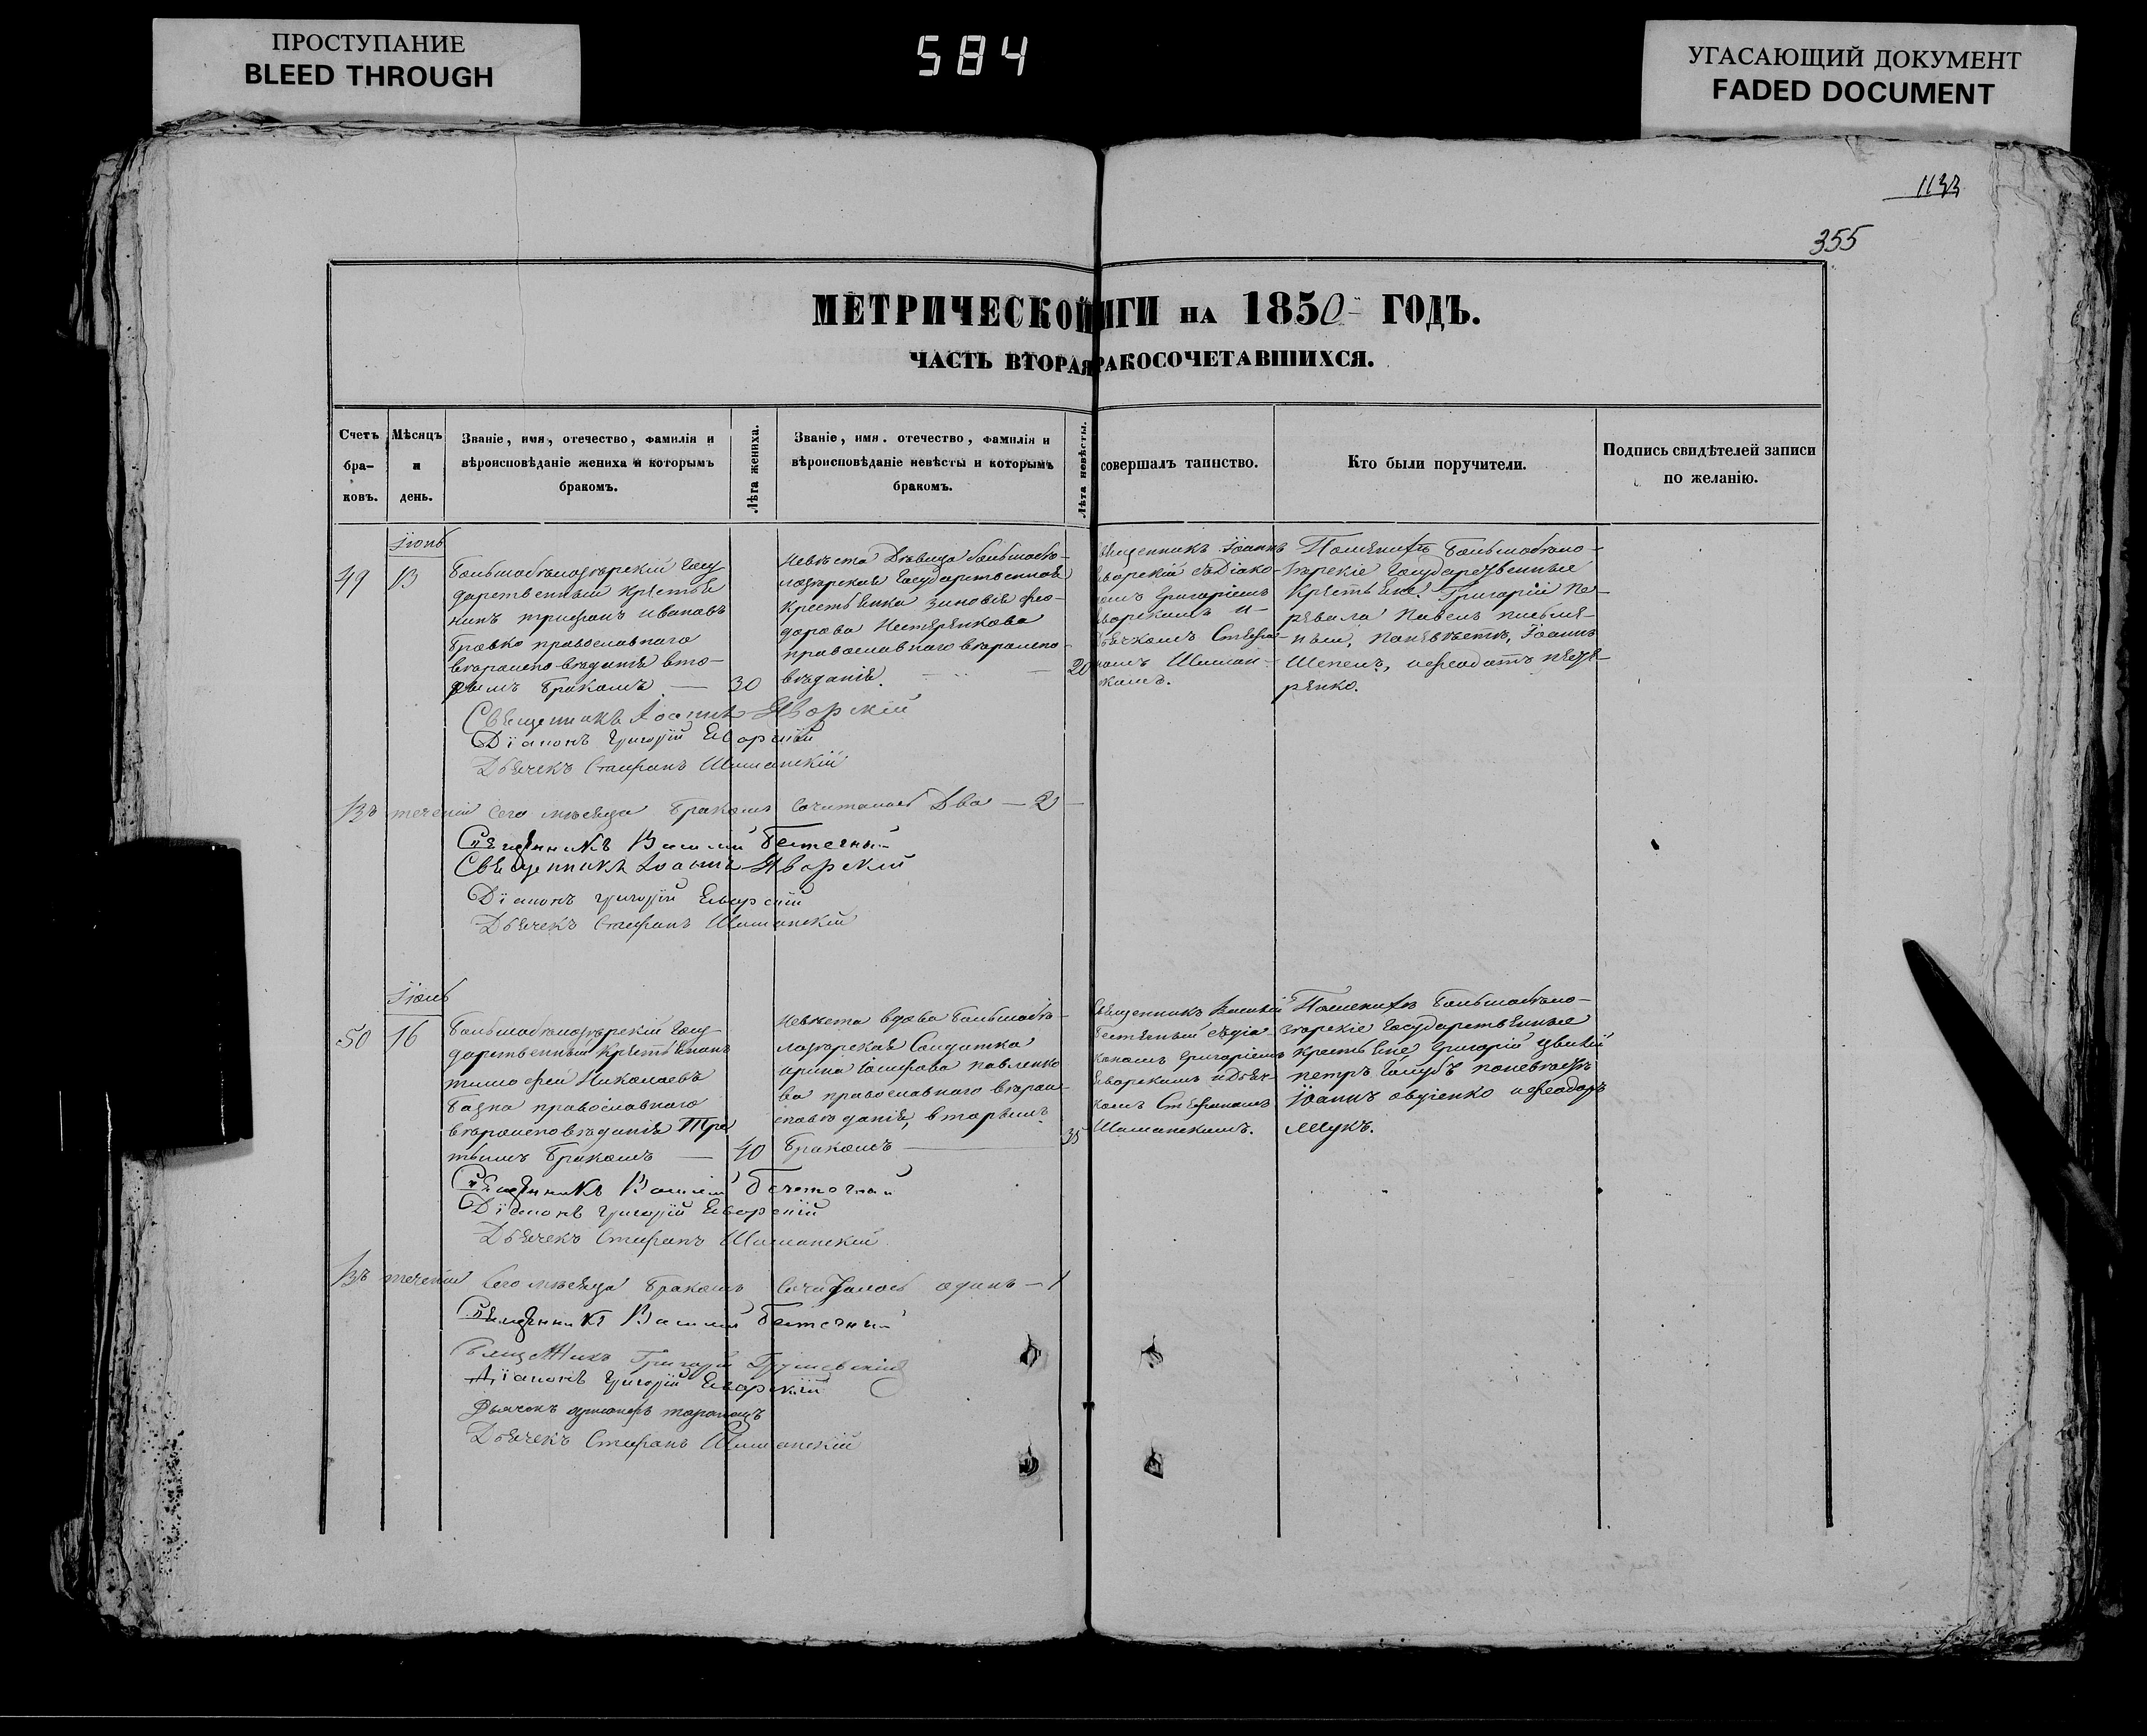 ПРОСТУПАНИЕ
BLEED THROUGH
584
УГАСАЮЩИЙ ДОКУМЕНТ
FADED DOCUMENT
355
МЕТРИЧЕСКОЙ ИГИ НА 1850 ГОДЪ.
ЧАСТЬ ВТОРАЯ РАКОСОЧЕТАВШИХСЯ.
Счетъ бра-ковъ.
Мѣсяцъ и день.
Званіе, имя, отечество, фамилія и вѣроисповѣданіе жениха и которымъ бракомъ.
Лѣта жениха.
Званіе, имя. отечество, фамилія и вѣроисповѣданіе невѣсты и которымъ бракомъ.
Лѣта невѣсты.
совершалъ таинство.
Кто были поручители.
Подпись свидѣтелей записи по желанію.
Іюнь
49
Большебѣлозѣрскій Госу
дарственный крестья
нинъ Трифонъ Ивановъ
Бровко православнаго
вто-
рымъ бракомъ
30
Невѣста Дѣвица Большебѣ-
лозѣрская Государственная
крестьянка Зиновія Фео-
дорова Нестеренкова
православнаго вѣроиспо-
вѣданія.
20
щенникъ Іоаннъ
ворскій съ Діако-
омъ Григоріемъ
ворскимъ и
ьячкомъ Стефа-
номъ Шиман-
скимъ.
По женихѣ Большебѣло-
зѣрскіе Государственные
крестьяне Григорій Пе-
ревала Павелъ
по невѣстѣ, Іоаннъ
Шепель, и Феодотъ
ренко.
Священникъ Іоаннъ Яворскій
Діаконъ Григорій Еворскій
Дьячекъ Стефанъ Шиманскій
Въ теченіи сего мѣсяца бракомъ сочиталось Два — 2 —
Священникъ Василій
Священникъ Іоаннъ Яворскій
Діаконъ Григорій Еворскій
Дьячекъ Стефанъ Шиманскій
Іюль
50
16
Большебѣлозѣрскій Госу
дарственный крестьянинъ
Тимофей Николаевъ
православнаго
вѣроисповѣданія Тре
тьимъ бракомъ
40
Невѣста вдова Большебѣ-
лозѣрская Солдатка
Ирина Іосифова Павленко
ва православнаго вѣрои-
сповѣданія, вторымъ
бракомъ
35
Священникъ Василій
съ Діа-
кономъ Григоріемъ
Еворскимъ и Дьяч-
комъ Стефаномъ
Шиманскимъ.
По женихѣ Большебѣло-
зѣрскіе Государственные
крестьяне Григорій
Петръ Голубъ по невѣстѣ
Іоаннъ и Феодоръ
Священникъ Василій
Діаконъ Григорій Еворскій
Дьячекъ Стефанъ Шиманскій
Въ теченіи сего мѣсяца бракомъ сочиталось одинъ — 1
Священникъ Василій
Священникъ Григорій
Діаконъ Григорій Еворскій
Дьячокъ
Дьячекъ Стефанъ Шиманскій